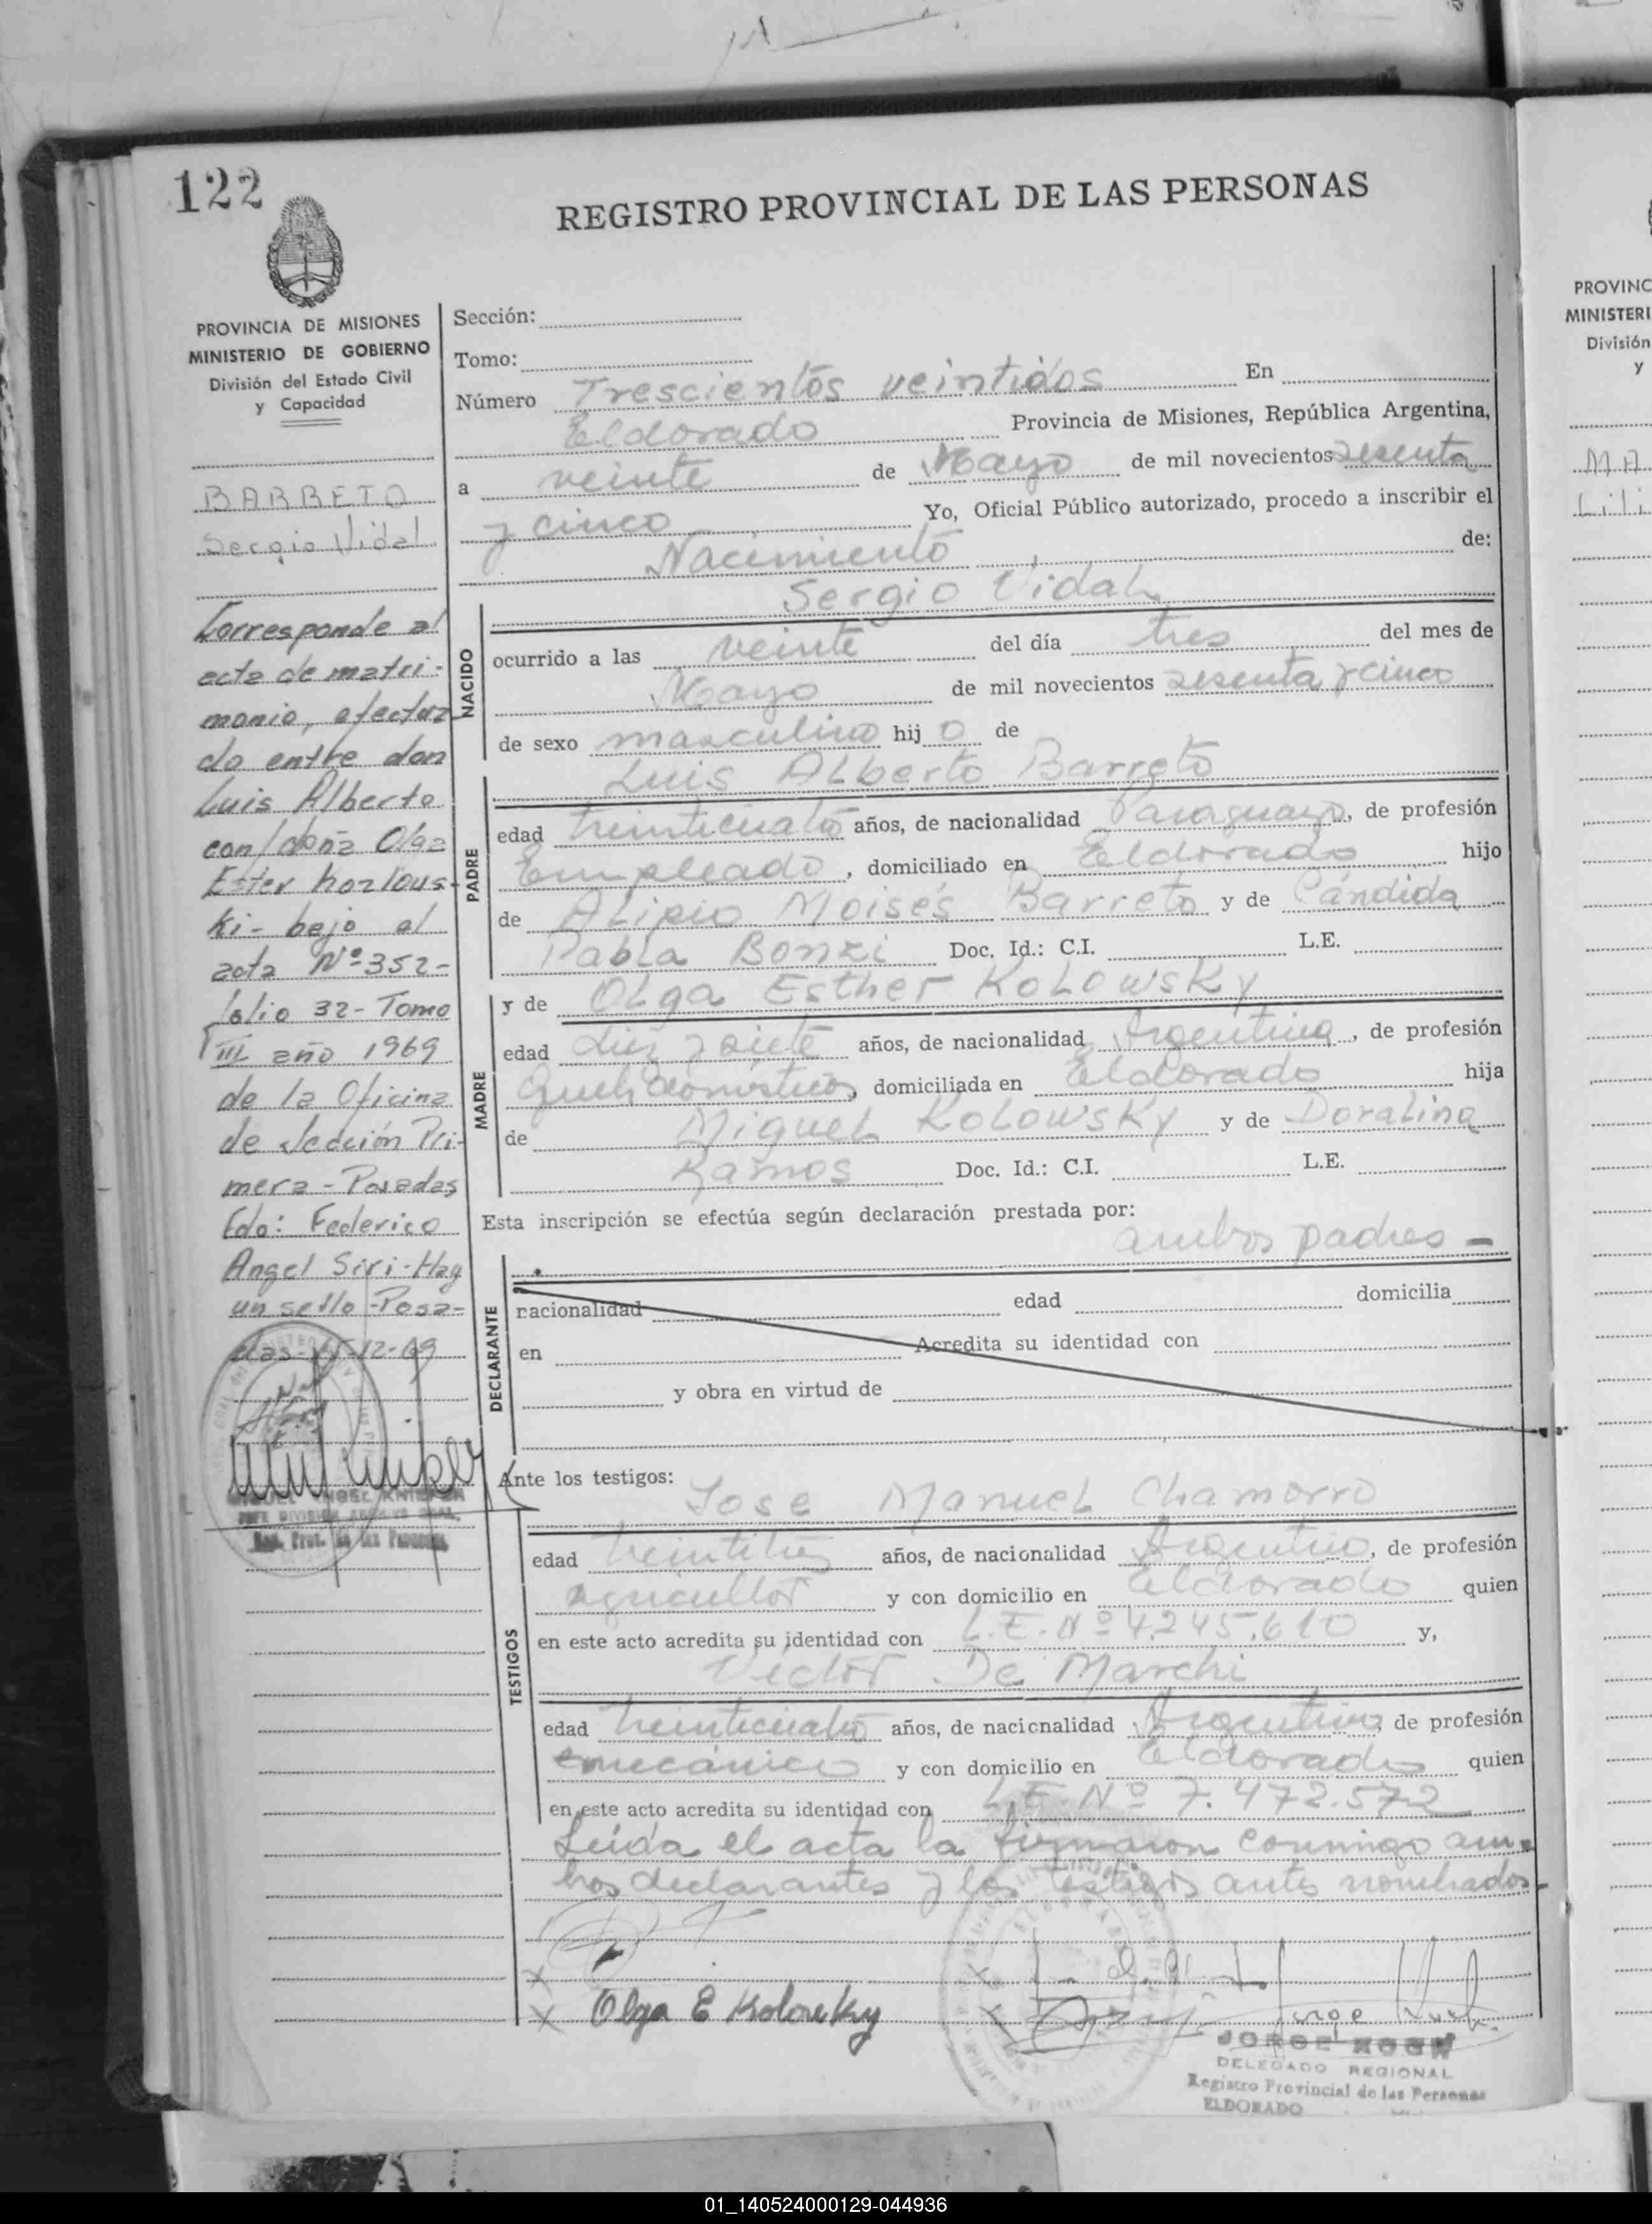 122
REGISTRO PROVINCIAL DE LAS PERSONAS
PROVINCIA DE MISIONES
MINISTERIO DE GOBIERNO
División del Estado Civil
y Capacidad
BARRETO
Sergio Vidal
Corresponde al
acta de matri-
monio, efectua
do entre don
Luis Alberto
con doña Olga
Ester Kozlous-
ki - bajo el
acta Nº 352-
folio 32 - Tomo
III año 1969
de la Oficina
de Sección Pri-
mera - Posadas
Fdo: Federico
Angel Siri - Hay
un sello - Posa-
das - 15-12-69
MIGUEL ANGEL
JEFE DIVISION ARCHIVO GRAL.
Reg. Prov. de las Personas
Sección:
Tomo:
Número Trescientos veintidos En
Eldorado Provincia de Misiones, República Argentina,
a veinte de Mayo de mil novecientos sesenta
y cinco Yo, Oficial Público autorizado, procedo a inscribir el
Nacimiento de:
NACIDO
Sergio Vidal
ocurrido a las veinte del día tres del mes de
Mayo de mil novecientos sesenta y cinco
de sexo masculino hijo de
PADRE
Luis Alberto Barreto
edad treinticuatro años, de nacionalidad Paraguayo, de profesión
Empleado, domiciliado en Eldorado hijo
de Alipio Moisés Barreto y de Cándida
Pabla Bonzi Doc. Id.: C.I. L.E.
MADRE
y de Olga Esther Kolowsky
edad diez y siete años, de nacionalidad Argentina, de profesión
Queh. domésticos, domiciliada en Eldorado hija
de Miguel Kolowsky y de Doralina
Ramos Doc. Id.: C.I. L.E.
Esta inscripción se efectúa según declaración prestada por:
ambos padres -
DECLARANTE
nacionalidad edad domicilia
en Acredita su identidad con
y obra en virtud de
Ante los testigos:
Jose Manuel Chamorro
TESTIGOS
edad treintitres años, de nacionalidad Argentino, de profesión
agricultor y con domicilio en Eldorado quien
en este acto acredita su identidad con L.E. Nº 4.245.610 y,
Victor De Marchi
edad treinticuatro años, de nacionalidad Argentino, de profesión
mecánico y con domicilio en Eldorado quien
en este acto acredita su identidad con L.E. Nº 7.472.572
Leída el acta la firmaron conmigo am-
bos declarantes y los testigos antes nombrados-
x
x Olga E Kolowky
x
x Jorge Koch
JORGE KOCH
DELEGADO REGIONAL
Registro Provincial de las Personas
ELDORADO
PROVINC
MINISTERI
División
y
MA
Lili
01_140524000129-044936